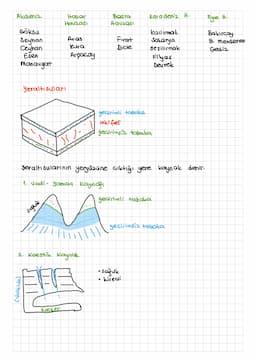 Akdeniz
Hazar Havzası
Basra Havzası
Karadeniz H.
Ege H.
Göksu
Seyhan
Ceyhan
Eşen
Manavgat
Aras
Kura
Arpaçay
Fırat
Dicle
Kızılırmak
Sakarya
Yeşilırmak
Filyos
Bakırçay
B. menderes
Gediz
yeraltı suları
geçirimli tabaka
geçirimsiz tabaka
Yeraltı sularının yeryüzüne çıktığı yere kaynak denir.
1. Vadi - Yamaç Kaynağı
geçirimli tabaka
geçirimsiz tabaka
2. Karstik Kaynak
• soğuk
• kireçli